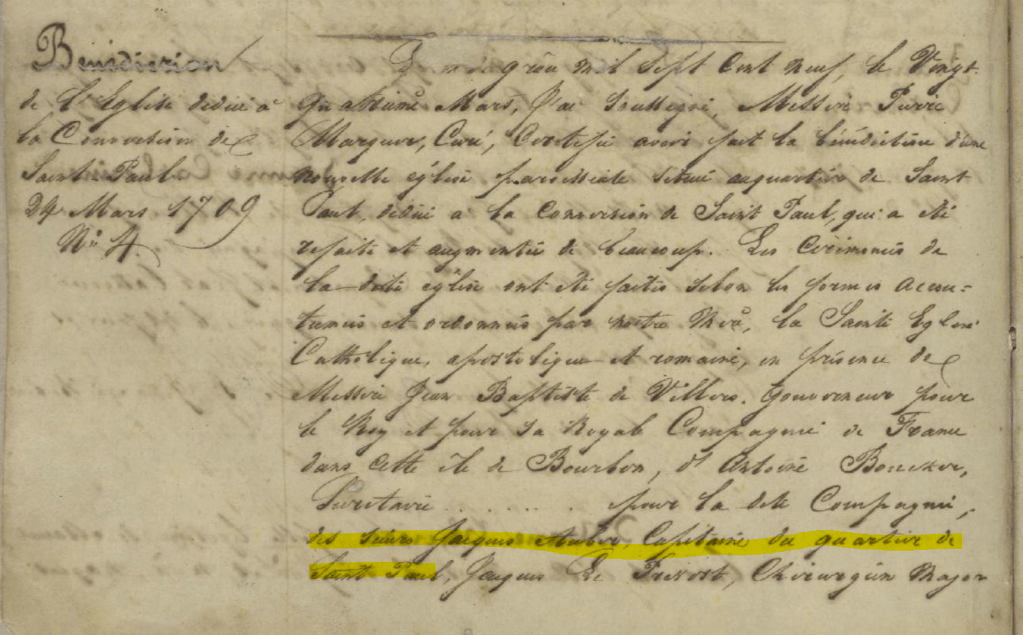 Bénédiction
de l'Eglise dédiée à
la Conversion de
Saint Paul
24 Mars 1709
N.° 4.
mil Sept Cent neuf, le Vingt
quatrième Mars, J'ai soussigné, Messire Pierre
Marquer, Curé, Certifie avoir fait la bénédiction d'une
nouvelle église paroissiale située au quartier de Saint
Paul, dédiée à la Conversion de Saint Paul, qui a été
refaite et augmentée de beaucoup. Les Cérémonies de
la dite église ont été faites selon les formes accou=
tumées et ordonnées par notre Mère, la Sainte Eglise
Catholique, apostolique et romaine, en présence de
Messire Jean Baptiste de Villers, Gouverneur pour
le Roy et pour la Royale Compagnie de France
dans cette île de Bourbon, d' Antoine Boucher,
Secrétaire . . . . . . . pour la dite Compagnie,
des sieurs Jacques Auber, Capitaine du quartier de
Saint Paul, Jacques Le Prevost, Chirurgien Major